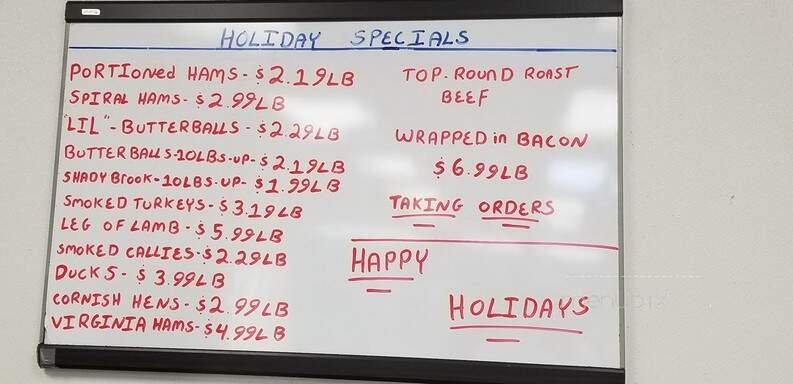 HOLIDAY SPECIALS
PORTIONED HAMS - $2.19LB
SPIRAL HAMS - $2.99LB
"LIL" - BUTTERBALLS - $2.29LB
BUTTERBALLS-10LBS-UP- $2.19LB
SHADY BROOK-10LBS-UP- $1.99LB
SMOKED TURKEYS - $3.19LB
LEG OF LAMB - $5.99LB
SMOKED CALLIES - $2.29LB
DUCKS - $3.99LB
CORNISH HENS - $2.99LB
VIRGINIA HAMS - $4.99LB
TOP-ROUND ROAST
BEEF
WRAPPED in BACON
$6.99LB
TAKING ORDERS
HAPPY
HOLIDAYS